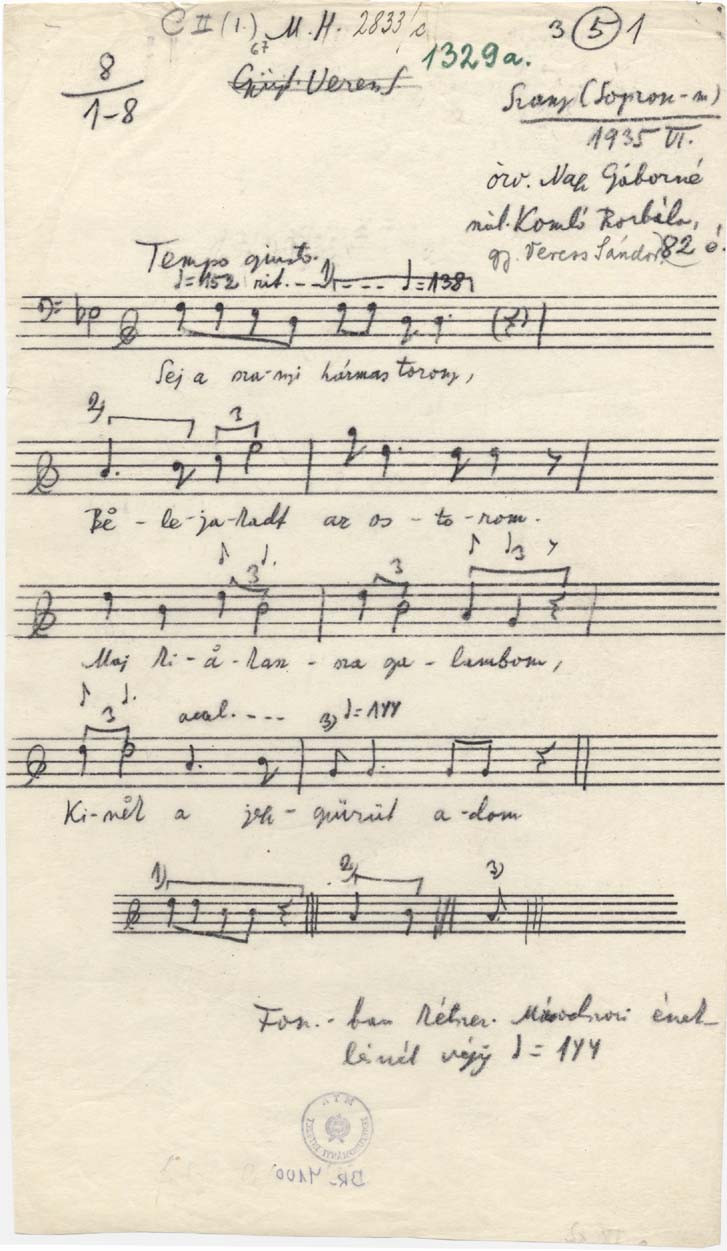 C II (1.) M. H. 2833/c 3 5 1
67
1329a.
8
1-8
Gyűjt. Veress
Szany (Sopron-m)
1935 VI.
özv. Nagy Gáborné
szül. Komló Borbála,
gy. Veress Sándor 82 é.
Tempo giusto.
♩=152 rit. --- 1) --- ♩=138
Sej a sza-nyi hármas torony,
2) 3
Bĕ-le-ja-kadt az os-to-rom.
3 3 3
Maj ki-å-kasz-sza ga-lambom,
3 accel. --- 3) ♩=144
Ki-nĕk a jegy-gyűrűt a-dom
1) 2) 3)
Fon.-ban kétszer. Másodszori ének-
lésnél végig ♩=144
BR-7100